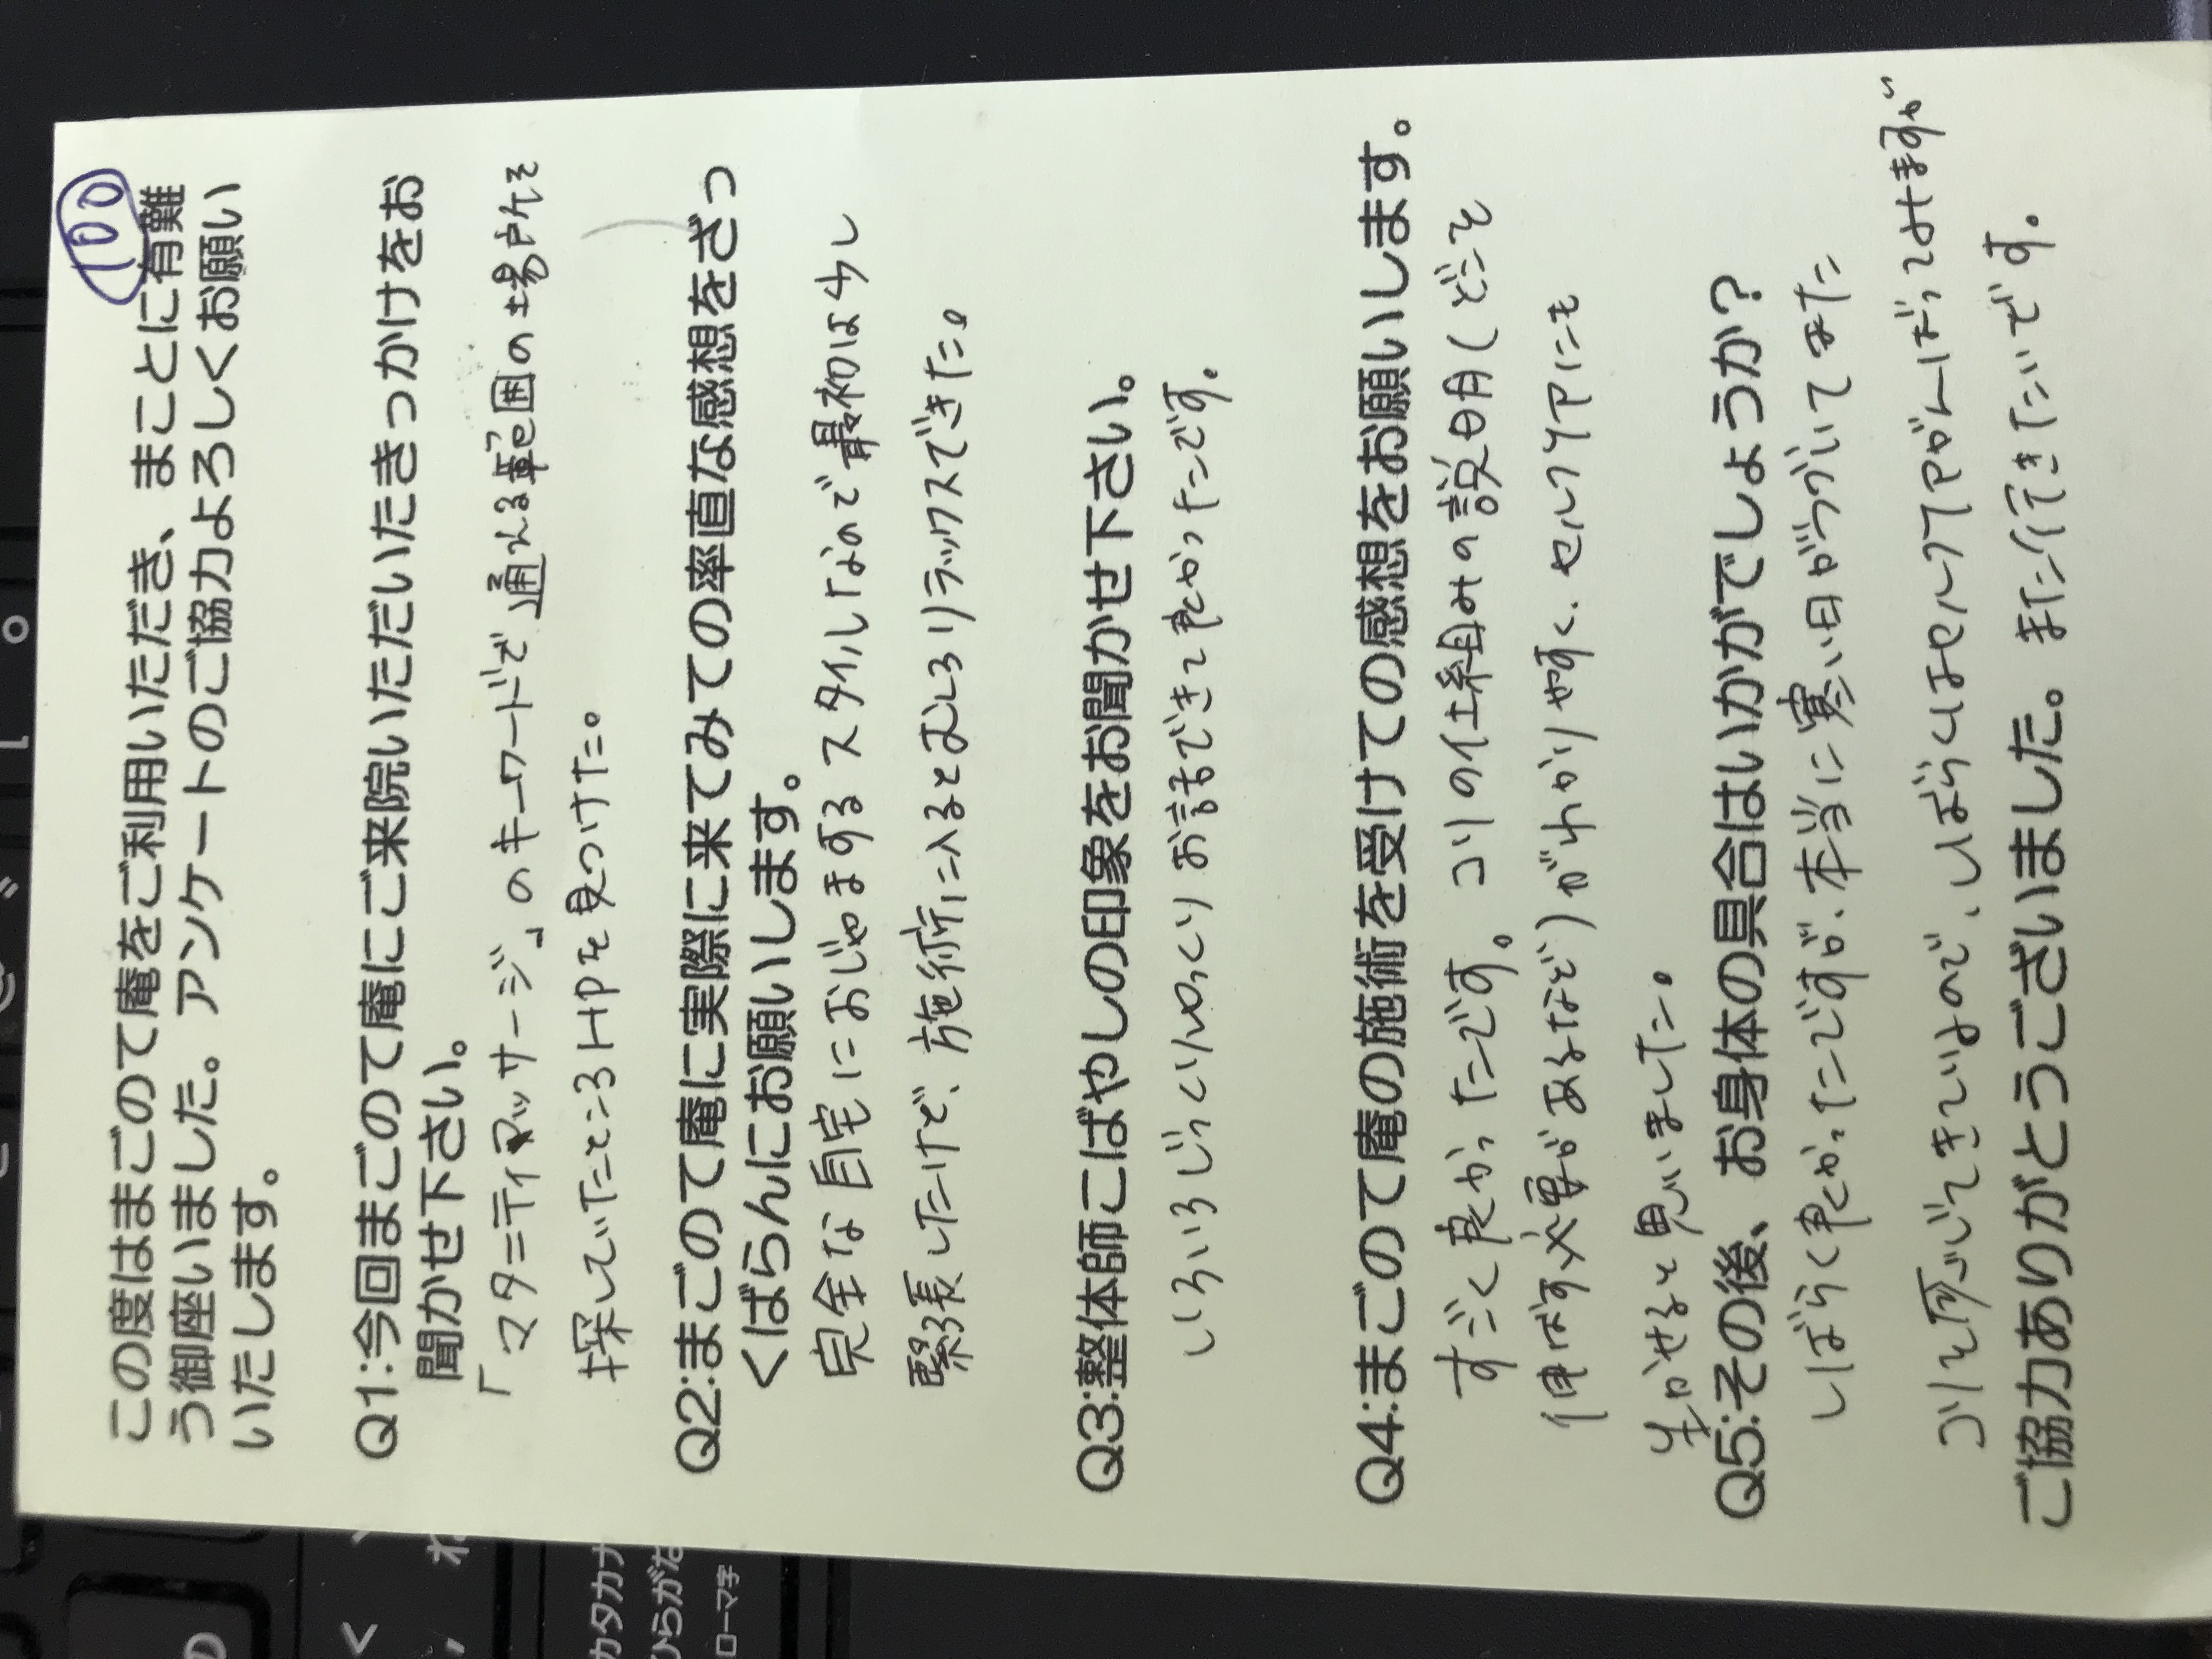 100
この度はまごのて庵をご利用いただき、まことに有難
う御座いました。アンケートのご協力よろしくお願い
いたします。
Q1:今回まごのて庵にご来院いただいたきっかけをお
聞かせ下さい。
「マタニティマッサージ」のキーワードで通える範囲の場所を
探していたところHPを見つけた。
Q2:まごのて庵に実際に来てみての率直な感想をざっ
くばらんにお願いします。
完全な自宅におじゃまするスタイルなので最初は少し
緊張したけど、施術に入るとむしろリラックスできた。
Q3:整体師こばやしの印象をお聞かせ下さい。
いろいろじっくりゆっくりお話できて良かったです。
Q4:まごのて庵の施術を受けての感想をお願いします。
すごく良かったです。コリの仕組みの説明(どこを
伸ばす必要があるなど)がわかりやすく、セルフケアにも
生かせると思いました。
Q5:その後、お身体の具合はいかがでしょうか?
しばらく良かったですが、本当に寒い日がつづいてまた
コリを感じてきているので、しばらくはセルフケアがんばってみますが
ご協力ありがとうございました。また行きたいです。
カタカナ
ひらがな
ローマ字
の
く
、
ね
。